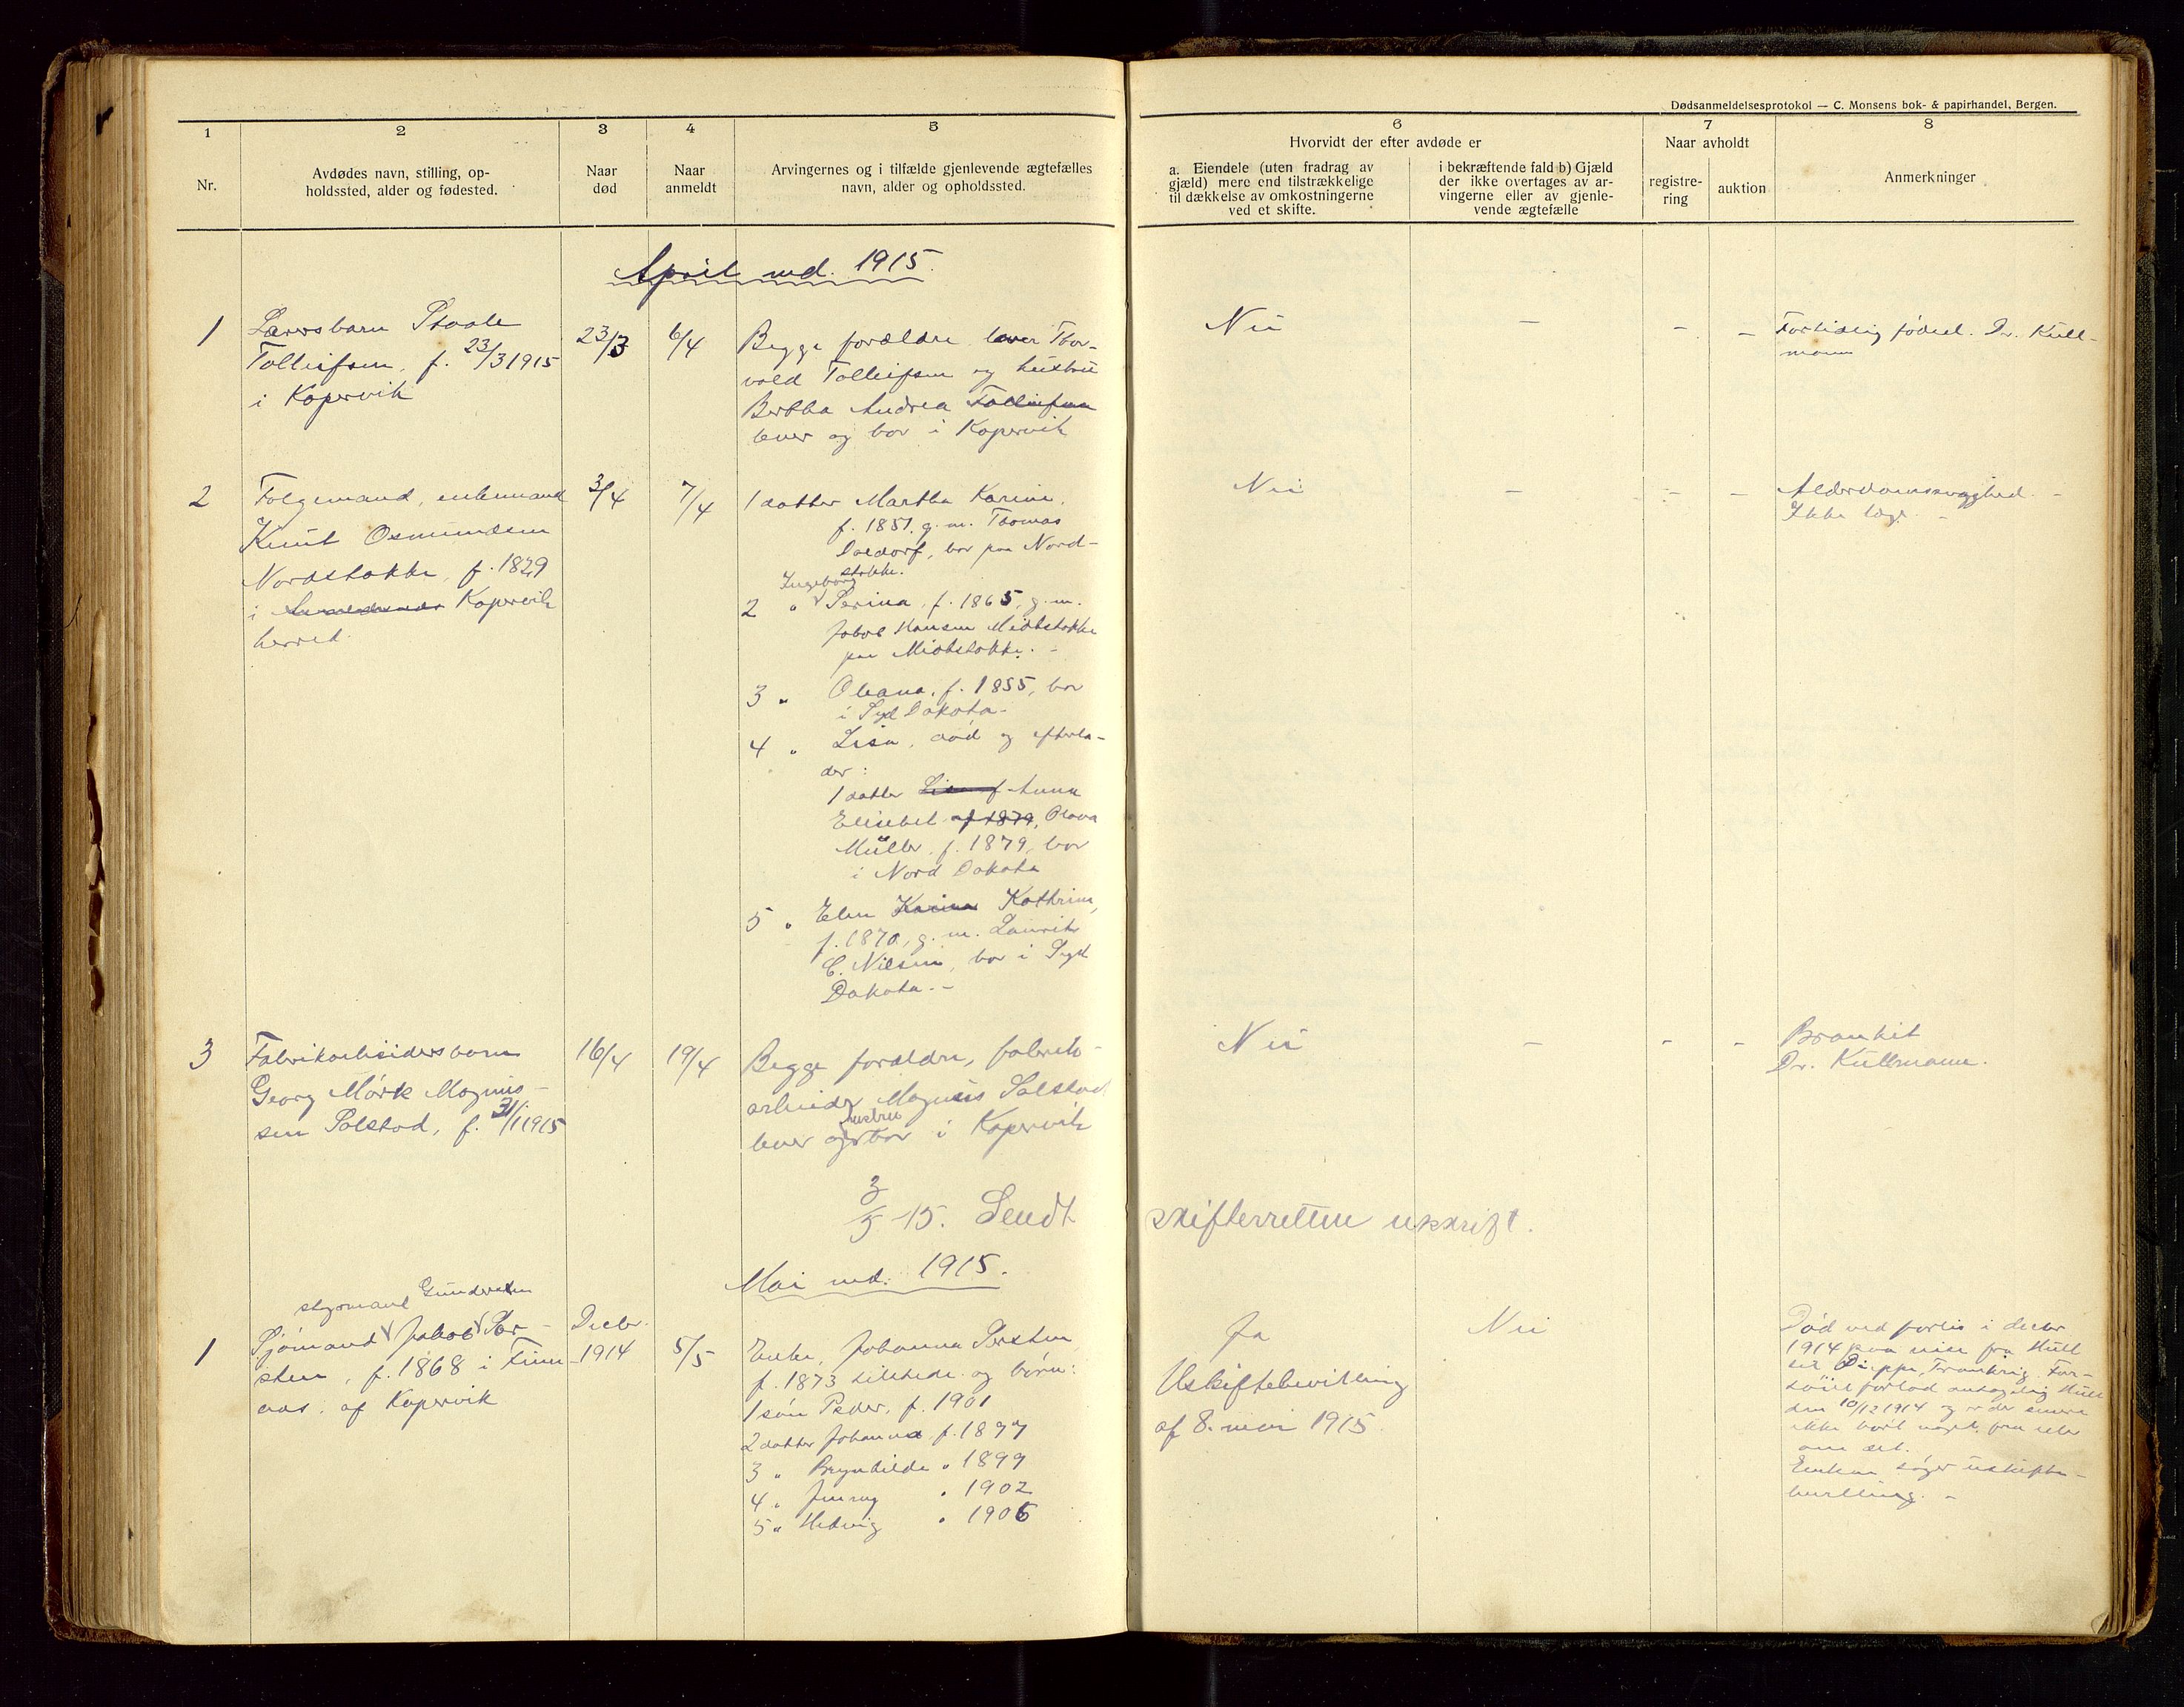 Dødsanmeldelsesprotokol — C. Monsens bok- & papirhandel, Bergen.
1
2
3
4
5
6
7
8
Nr.
Avdødes navn, stilling, op-
holdssted, alder og fødested.
Naar
død
Naar
anmeldt
Arvingernes og i tilfælde gjenlevende ægtefælles
navn, alder og opholdssted.
Hvorvidt der efter avdøde er
a. Eiendele (uten fradrag av
gjæld) mere end tilstrækkelige
til dækkelse av omkostningerne
ved et skifte.
i bekræftende fald b) Gjæld
der ikke overtages av ar-
vingerne eller av gjenle-
vende ægtefælle
Naar avholdt
registre-
ring
auktion
Anmerkninger
April md. 1915.
1
Staale
Tolleifsen, f. 23/3 1915
i Kopervik
23/3
6/4
Begge forældre lever Thor-
vald Tolleifsen og hustru
Bertha Andrea Tolleifsen
lever og bor i Kopervik
Nei
-
-
-
Fortidlig födsel. Dr. Kull-
mann
2
Folgemand, enkemand
Knut Osmundsen
Nordstokke, f. 1829
i Kopervik
herred.
3/4
7/4
1 datter Martha Karine,
f. 1851. g. m. Thomas
bor paa Nord-
stokke.
Ingeborg
2 " Serina, f. 1865, g. m.
Jakob Hansen Midtstokke
paa Midtstokke. -
3 " Oleana, f. 1855, bor
i Syd Dakota.
4 " Lisa, död og efterla-
der:
1 datter Anna
Elisebet f 1879, Olava
Müller, f. 1879, bor
i Nord Dakota
5 " Elen Karina Kathrine,
f. 1870, g. m. Laurits
C. Nilsen, bor i Syd
Dakota. -
Nei
-
-
-
Alderdomssvaghed. -
Ikke læge. -
3
Fabrikarbeidersbarn
Georg Mörk Magnus-
sen Salstad, f. 31/1 1915
16/4
19/4
Begge forældre, fabrik-
arbeider Magnus Salstad
hustru
lever og bor i Kopervik
Nei
-
-
-
Bronkit
Dr. Kullmann.
3/5 15. Sendt skifteretten utskrift.
Mai md. 1915.
styrmand Gundersen
1
Sjömand Jakob Tor-
sten, f. 1868 i Finn-
aas, af Kopervik
Decbr.
1914
5/5
Enke, Johanna Torsten
f. 1873 tilstede og börn:
1 sön Peder, f. 1901
2 datter Johanna f. 1897
3 " Brynhilde " 1899
4 " Jenny " 1902
5 " Hedvig " 1906
Ja
Uskiftebevilling
af 8. mai 1915.
Nei
Död ved forlis i decbr
1914 paa reise fra Hull
til Dieppe, Frankrig. Far-
töiet forlod antagelig Hull
den 10/12 1914 og er der senere
ikke hört noget fra eller
om det.
Enken söger uskifte-
bevilling. -